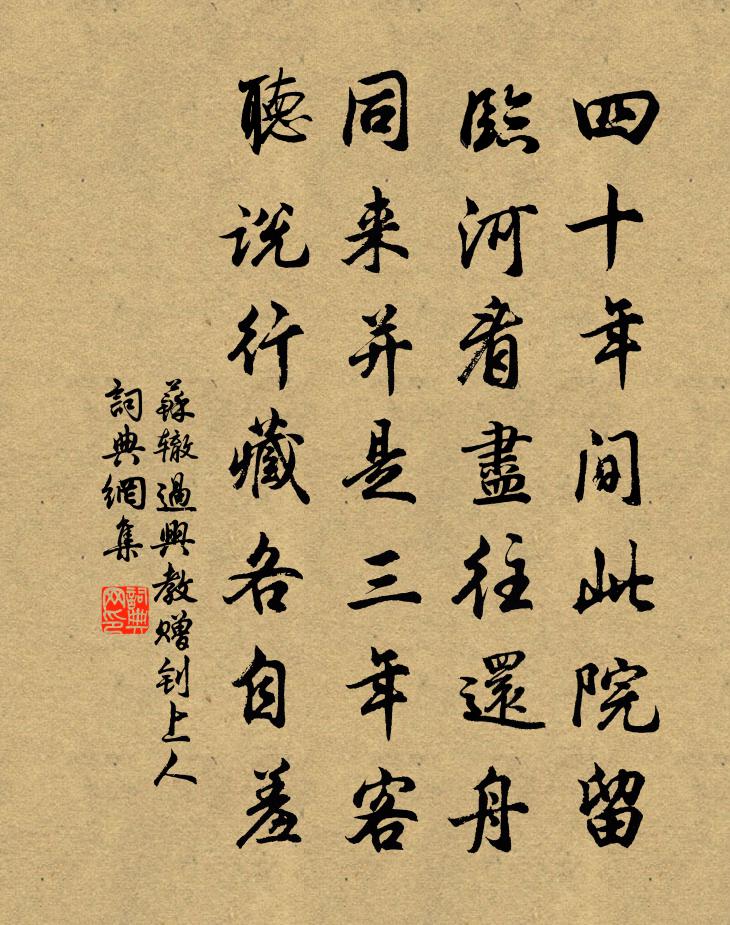 四十年間此院留
臨河看盡往還舟
同来并是三年客
聽説行藏各自羞
蘇辙過興教赠钊上人
詞典網集
詞典网印